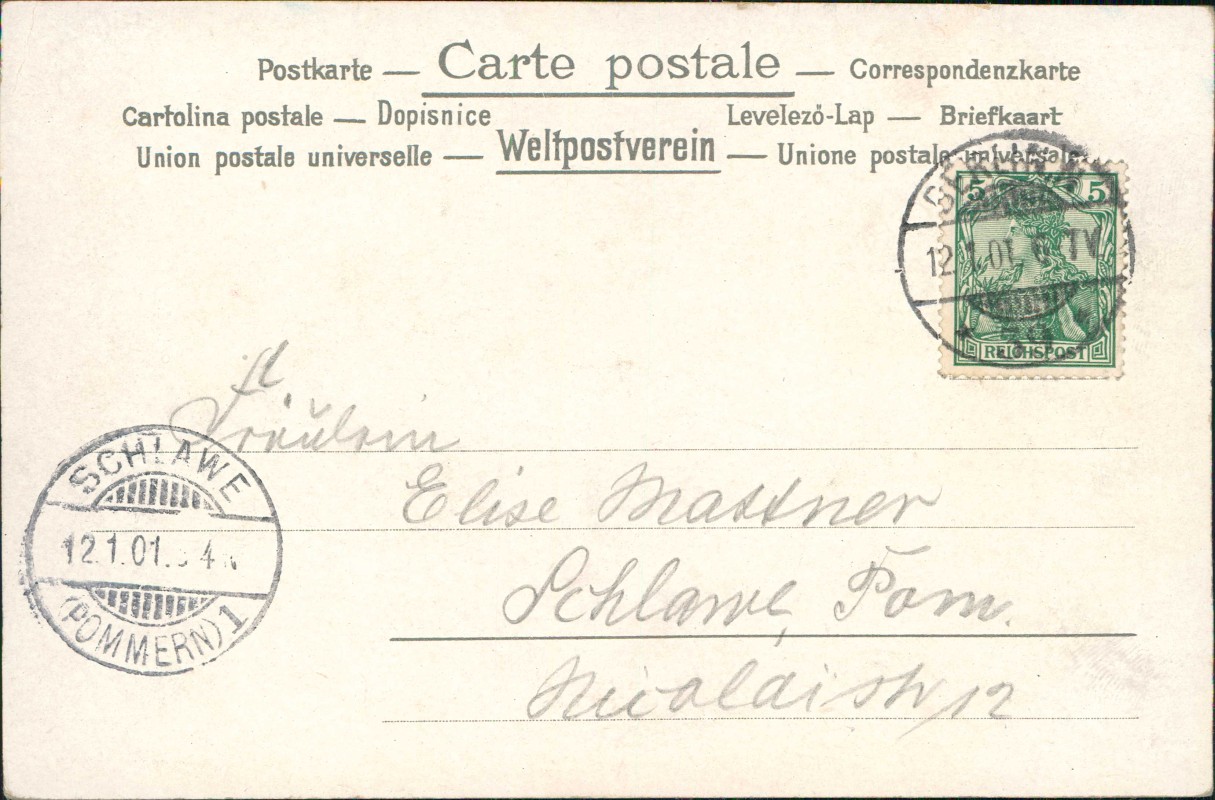 Postkarte — Carte postale — Correspondenzkarte
Cartolina postale — Dopisnice Levelező-Lap — Briefkaart
Union postale universelle — Weltpostverein — Unione postale universale
5 5
12.1.01. TV.
REICHSPOST
Fräulein
Elise Mattner
Schlawe, Pom.
Nicolaistr 12
SCHLAWE
12.1.01. 4
(POMMERN) 1